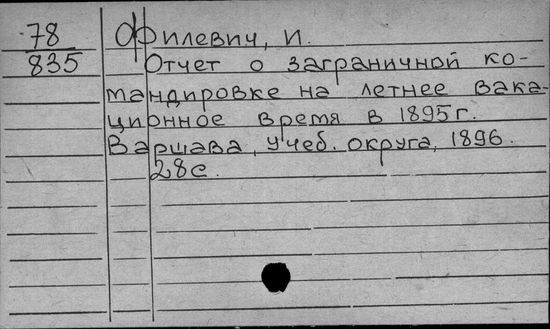 78 Филевич, И.
835 Отчет о заграничной ко-
мандировке на летнее вака-
ционное время в 1895г.
Варшава, Учеб. округа, 1896.
28с.